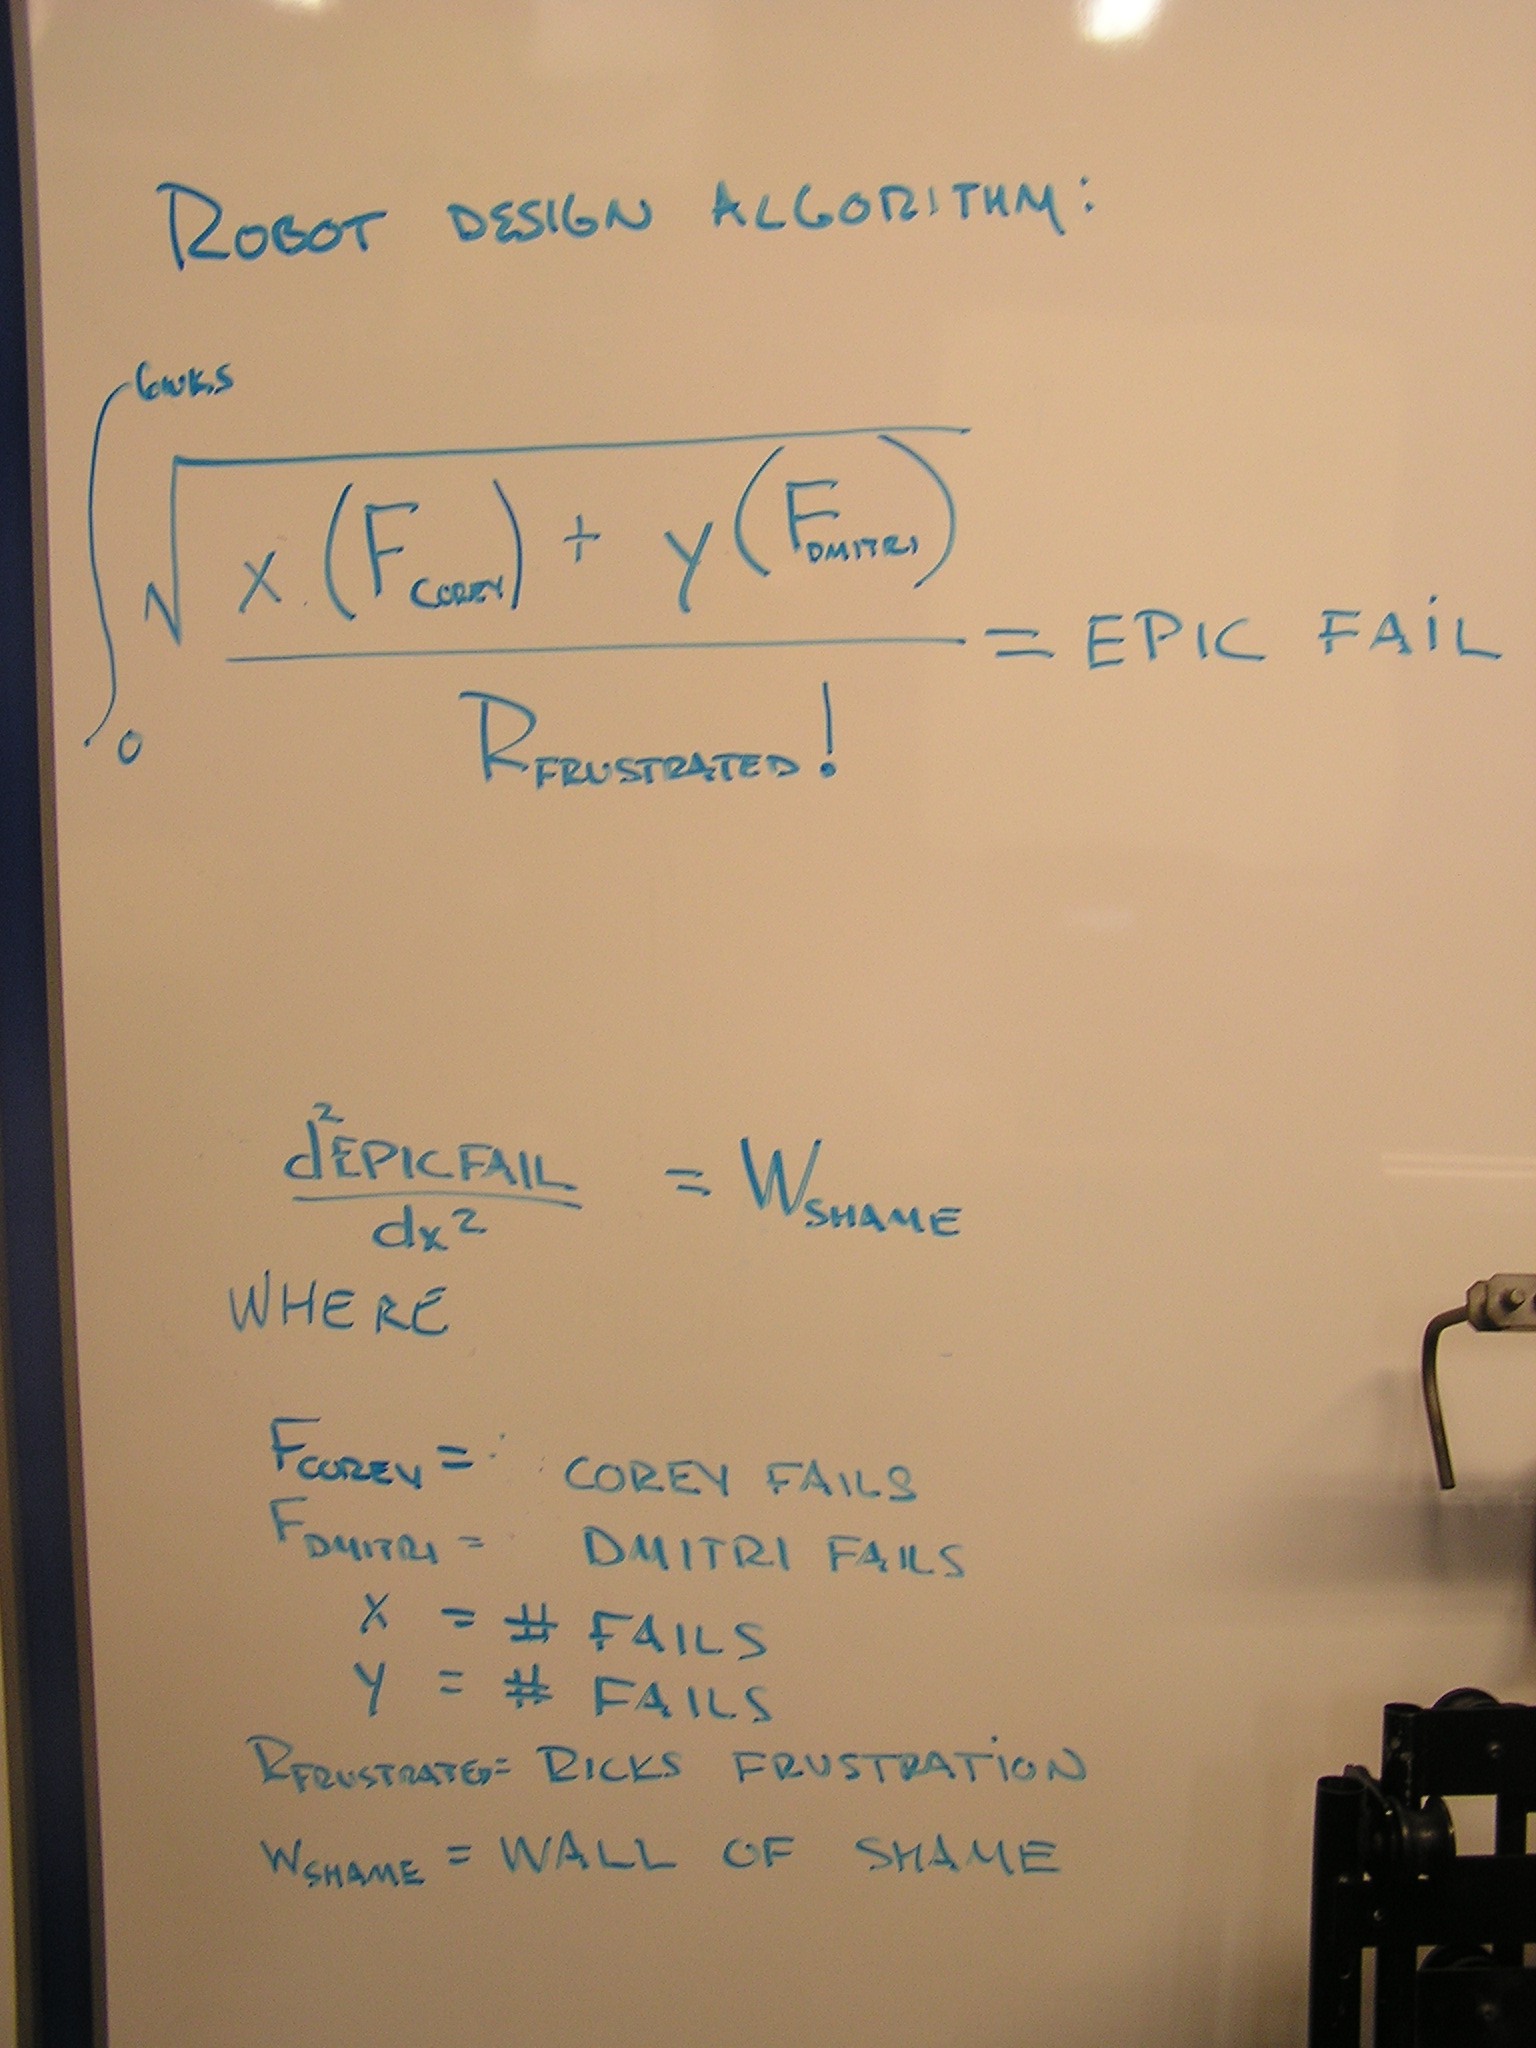 ROBOT DESIGN ALGORITHM:
6WKS
√ x (F COREY) + y (F DMITRI)
= EPIC FAIL
R FRUSTRATED !
0
d²EPICFAIL
= W SHAME
dx²
WHERE
F COREY = COREY FAILS
F DMITRI = DMITRI FAILS
X = # FAILS
Y = # FAILS
R FRUSTRATED = RICKS FRUSTRATION
W SHAME = WALL OF SHAME